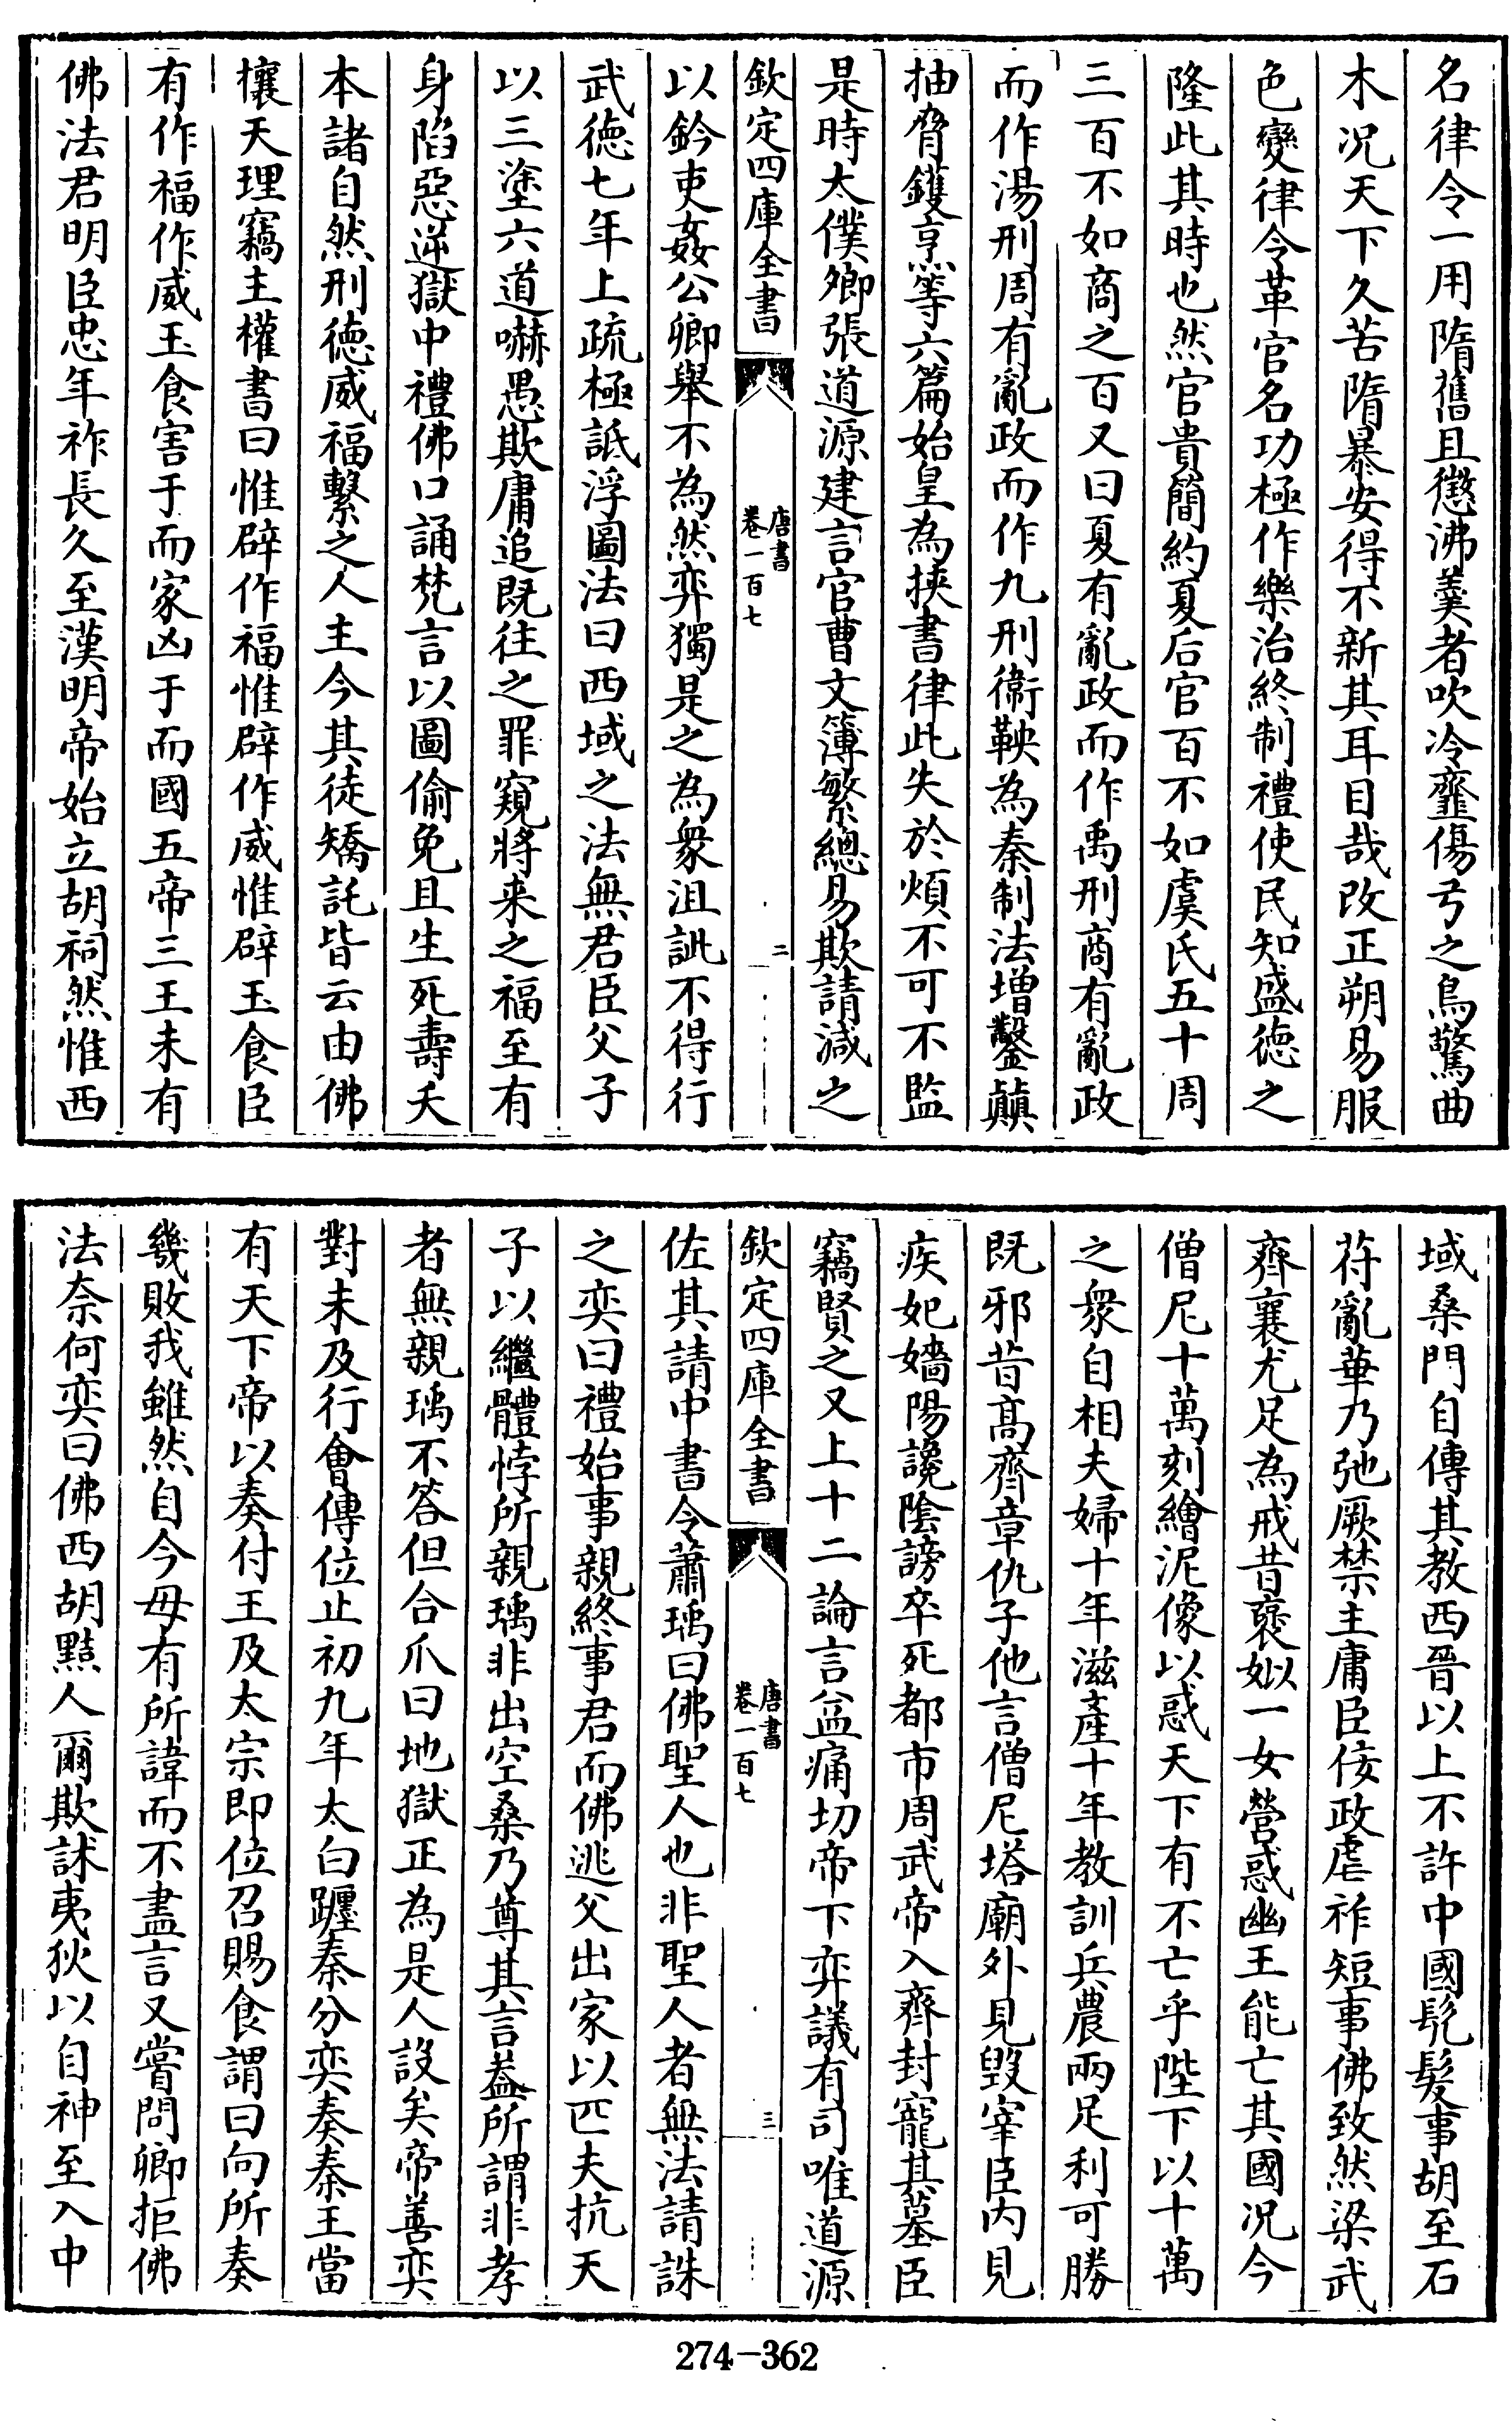 名律令一用隋舊且懲沸羹者吹冷齏傷弓之鳥驚曲
木况天下久苦隋暴安得不新其耳目哉改正朔易服
色變律令革官名功極作樂治終制禮使民知盛徳之
隆此其時也然官貴簡約夏后官百不如虞氏五十周
三百不如商之百又曰夏有亂政而作禹刑商有亂政
而作湯刑周有亂政而作九刑衞鞅為秦制法增鑿顛
抽脅鑊烹等六篇始皇為挾書律此失於煩不可不監
是時太僕卿張道源建言官曹文簿繁總易欺請減之
欽定四庫全書
唐書
卷一百七
二
以鈐吏姦公卿舉不為然弈獨是之為衆沮訿不得行
武徳七年上疏極詆浮圖法曰西域之法無君臣父子
以三塗六道嚇愚欺庸追既往之罪窺將来之福至有
身陷惡逆獄中禮佛口誦梵言以圖偷免且生死壽夭
本諸自然刑徳威福繫之人主今其徒矯託皆云由佛
攘天理竊主權書曰惟辟作福惟辟作威惟辟玉食臣
有作福作威玉食害于而家凶于而國五帝三王未有
佛法君明臣忠年祚長久至漢明帝始立胡祠然惟西
域桑門自傳其教西晉以上不許中國髠髮事胡至石
苻亂華乃弛厥禁主庸臣佞政虐祚短事佛致然梁武
齊襄尤足為戒昔褒姒一女營惑幽王能亡其國况今
僧尼十萬刻繪泥像以惑天下有不亡乎陛下以十萬
之衆自相夫婦十年滋產十年教訓兵農兩足利可勝
既邪昔髙齊章仇子他言僧尼塔廟外見毀宰臣内見
疾妃嬙陽讒陰謗卒死都市周武帝入齊封寵其墓臣
竊賢之又上十二論言益痛切帝下弈議有司唯道源
欽定四庫全書
唐書
卷一百七
三
佐其請中書令蕭瑀曰佛聖人也非聖人者無法請誅
之奕曰禮始事親終事君而佛逃父出家以匹夫抗天
子以繼體悖所親瑀非出空桑乃尊其言葢所謂非孝
者無親瑀不答但合爪曰地獄正為是人設矣帝善奕
對未及行會傳位止初九年太白躔秦分奕奏秦王當
有天下帝以奏付王及太宗即位召賜食謂曰向所奏
幾敗我雖然自今毋有所諱而不盡言又嘗問卿拒佛
法奈何奕曰佛西胡黠人爾欺訹夷狄以自神至入中
274-362